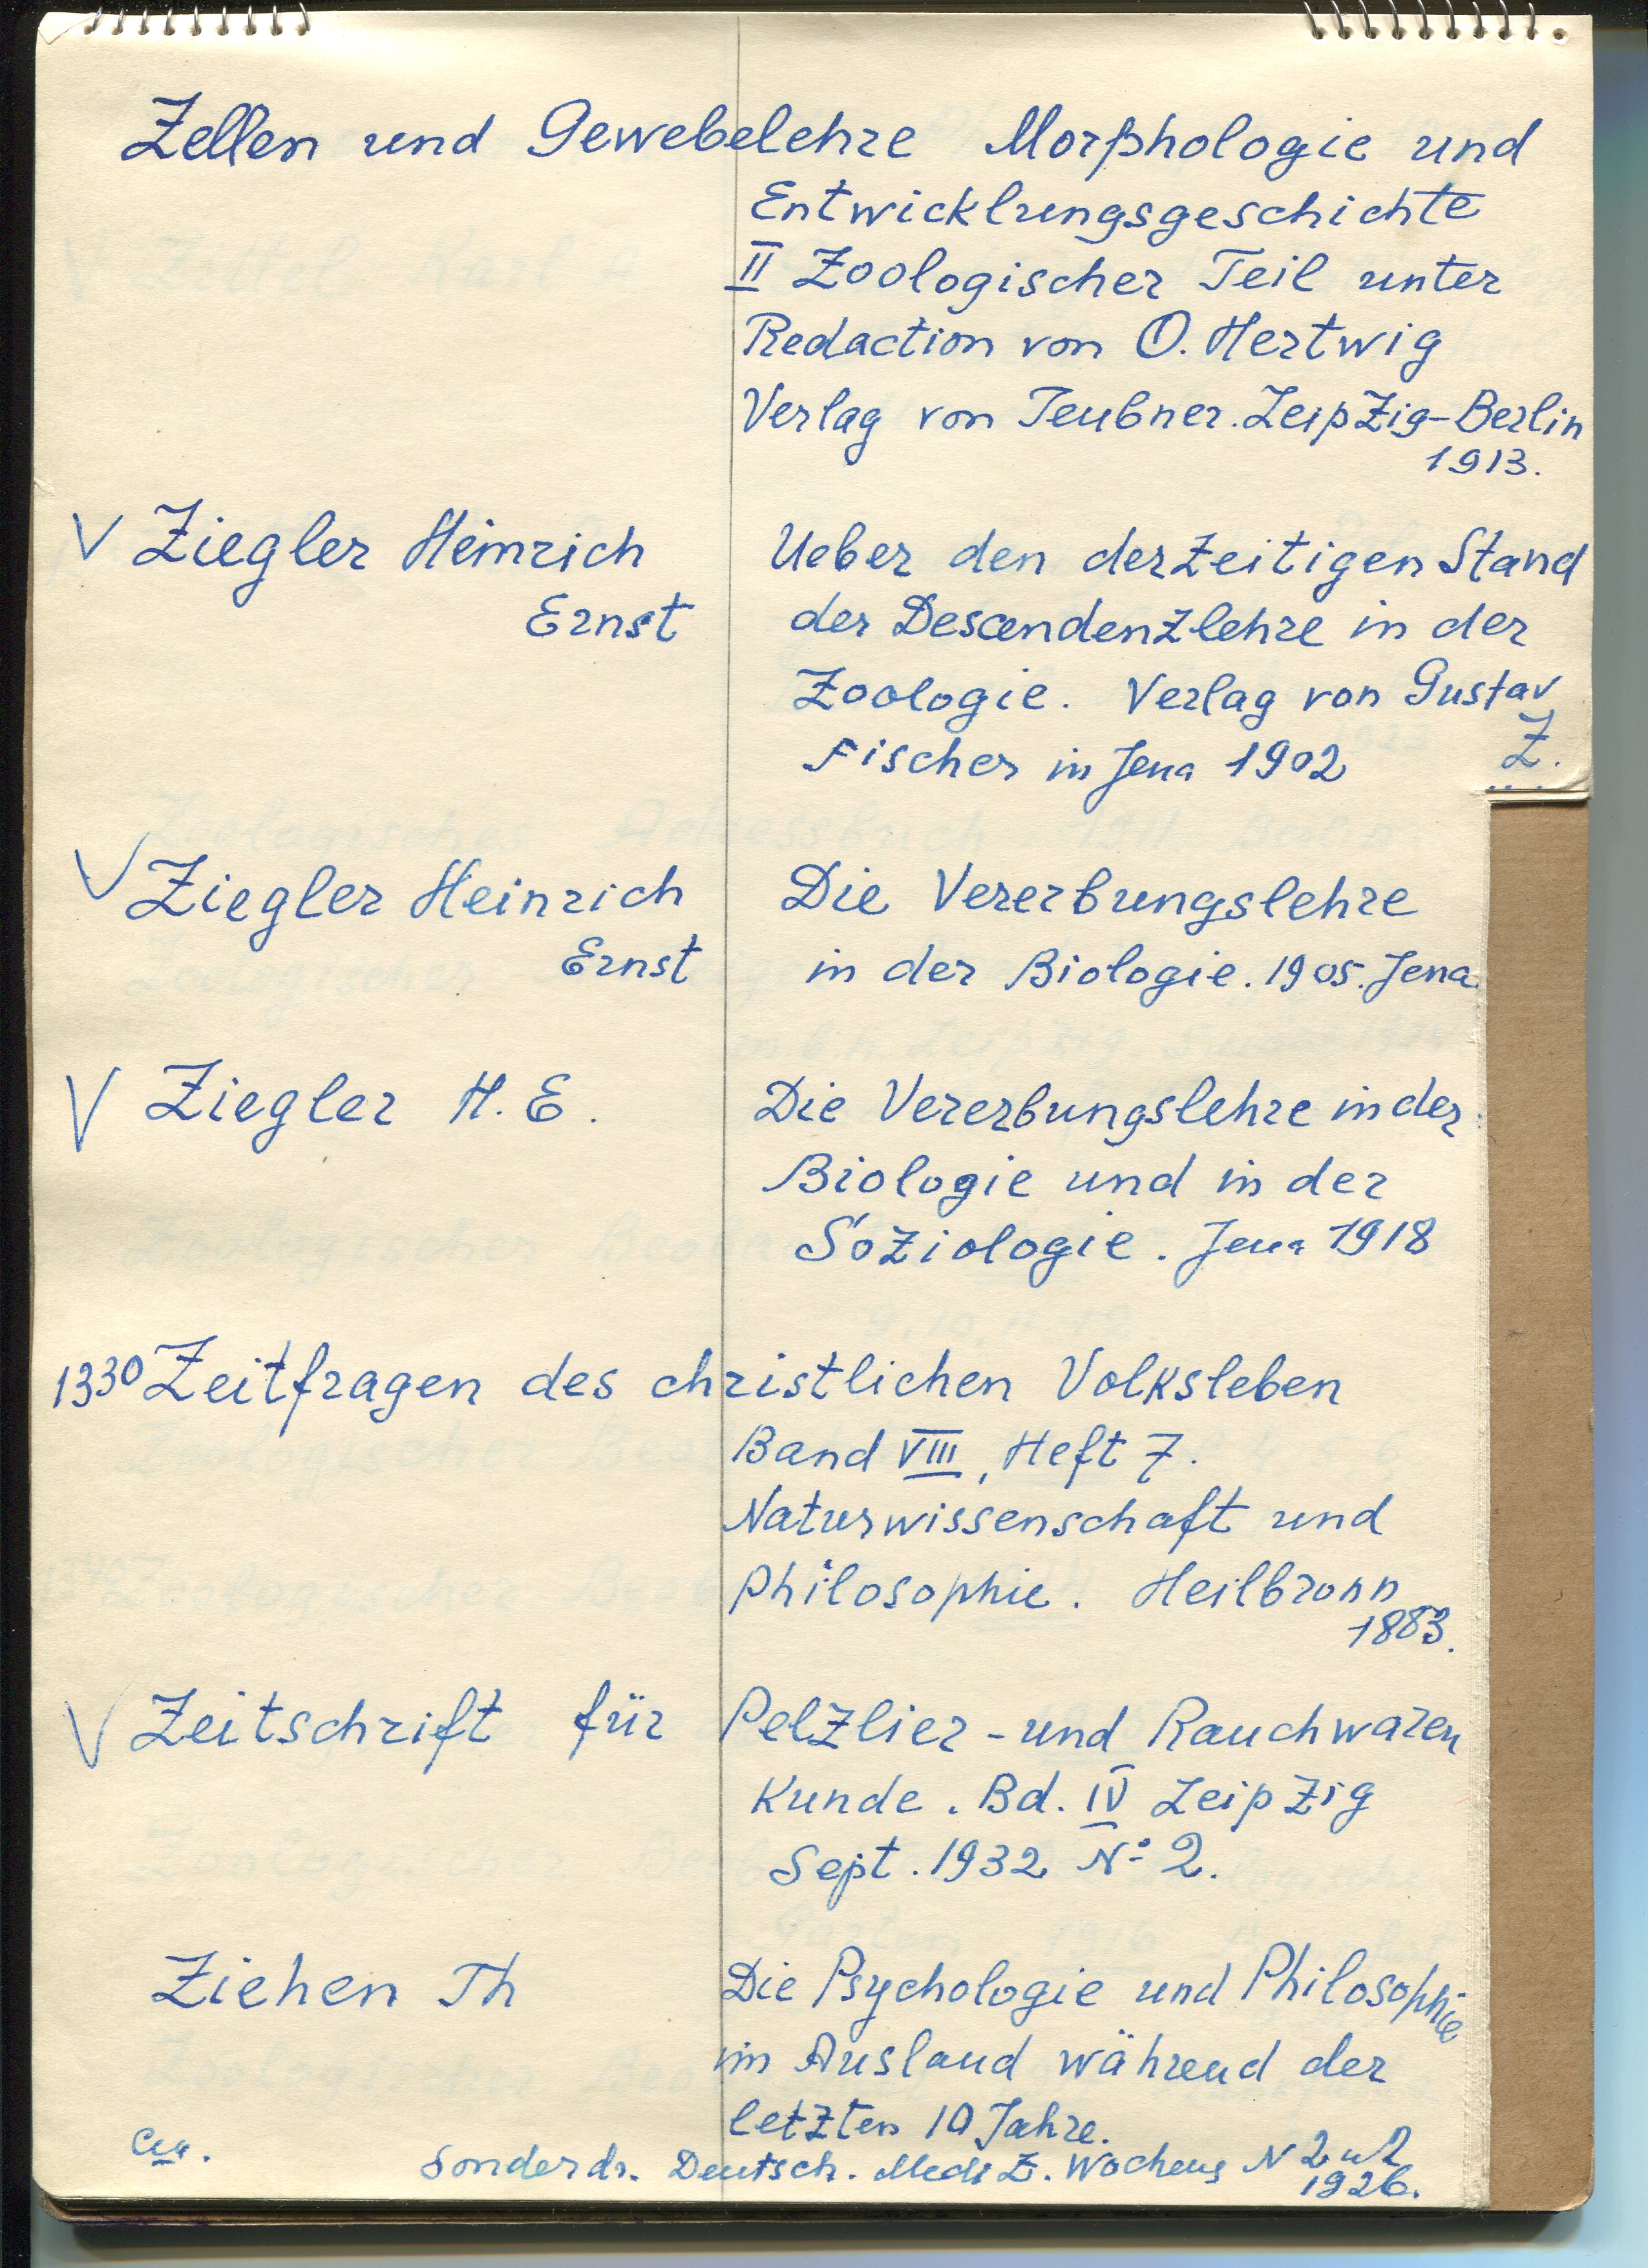 Zellen und Gewebelehre Morphologie und
Entwicklungsgeschichte
II Zoologischer Teil unter
Redaction von O. Hertwig
Verlag von Teubner. Leipzig-Berlin
1913.
V Ziegler Heinrich Ueber den derzeitigen Stand
Ernst der Descendenzlehre in der
Zoologie. Verlag von Gustav
Fischer in Jena 1902
Z.
V Ziegler Heinrich Die Vererbungslehre
Ernst in der Biologie. 1905. Jena
V Ziegler H. E. Die Vererbungslehre in der
Biologie und in der
Soziologie. Jena 1918
1330 Zeitfragen des christlichen Volksleben
Band VIII, Heft 7.
Naturwissenschaft und
Philosophie. Heilbronn
1883.
V Zeitschrift für Pelzlier-und Rauchwaren
Kunde. Bd. IV Leipzig
Sept. 1932 No 2.
Ziehen Th Die Psychologie und Philosophie
im Ausland während der
letzten 10 Jahre.
Sonderdr. Deutsch. Mediz. Wochens N 2 u 2
1926.